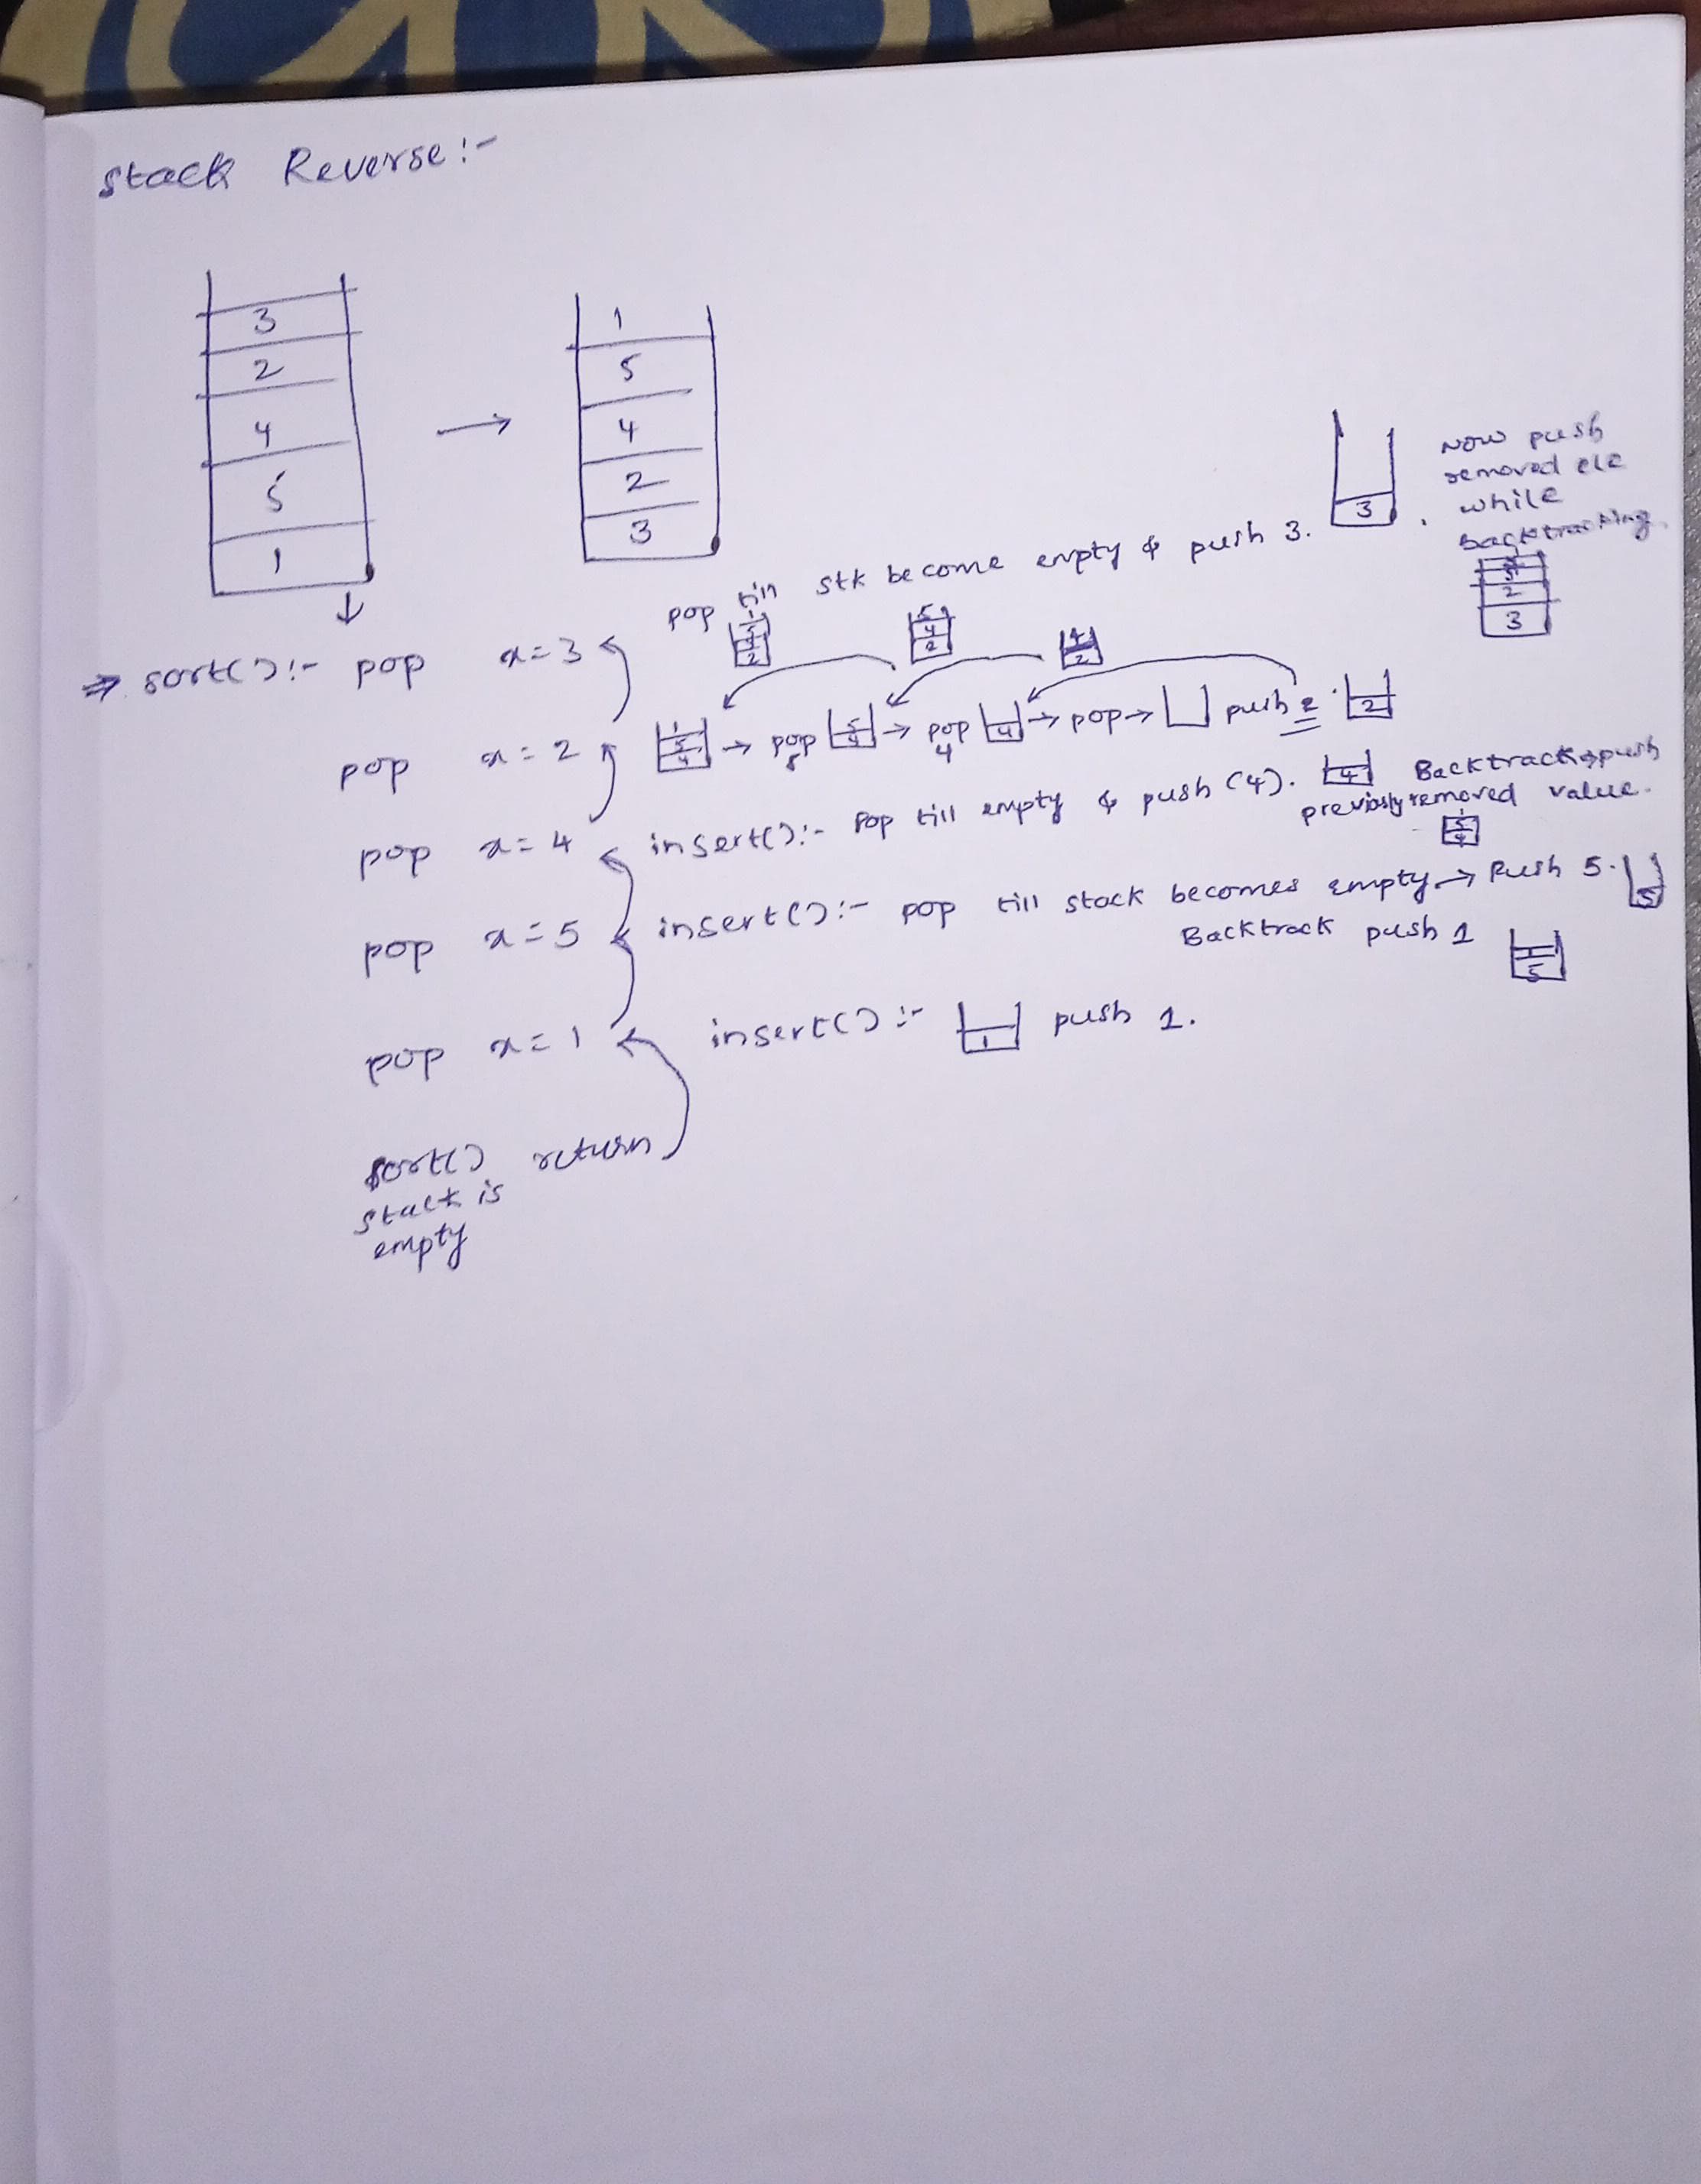 stack Reverse:-
3
2
4
5
1
→
1
5
4
2
3
pop till stk become empty & push 3.
3
Now push
removed ele
while
Backtracking.
2
3
⇒ sort():- pop x=3
5
4
2
4
2
pop x=2
1
5
4
→ pop
5
4
→ pop
4
4
→ pop → push 2.
2
pop x=4 insert():- Pop till empty & push (4).
4
Backtrack→push
previosly removed value.
1
5
4
pop x=5 insert():- pop till stack becomes empty → Push 5.
5
Backtrack push 1
1
5
pop x=1 insert():-
1
push 1.
sort() return
stack is
empty